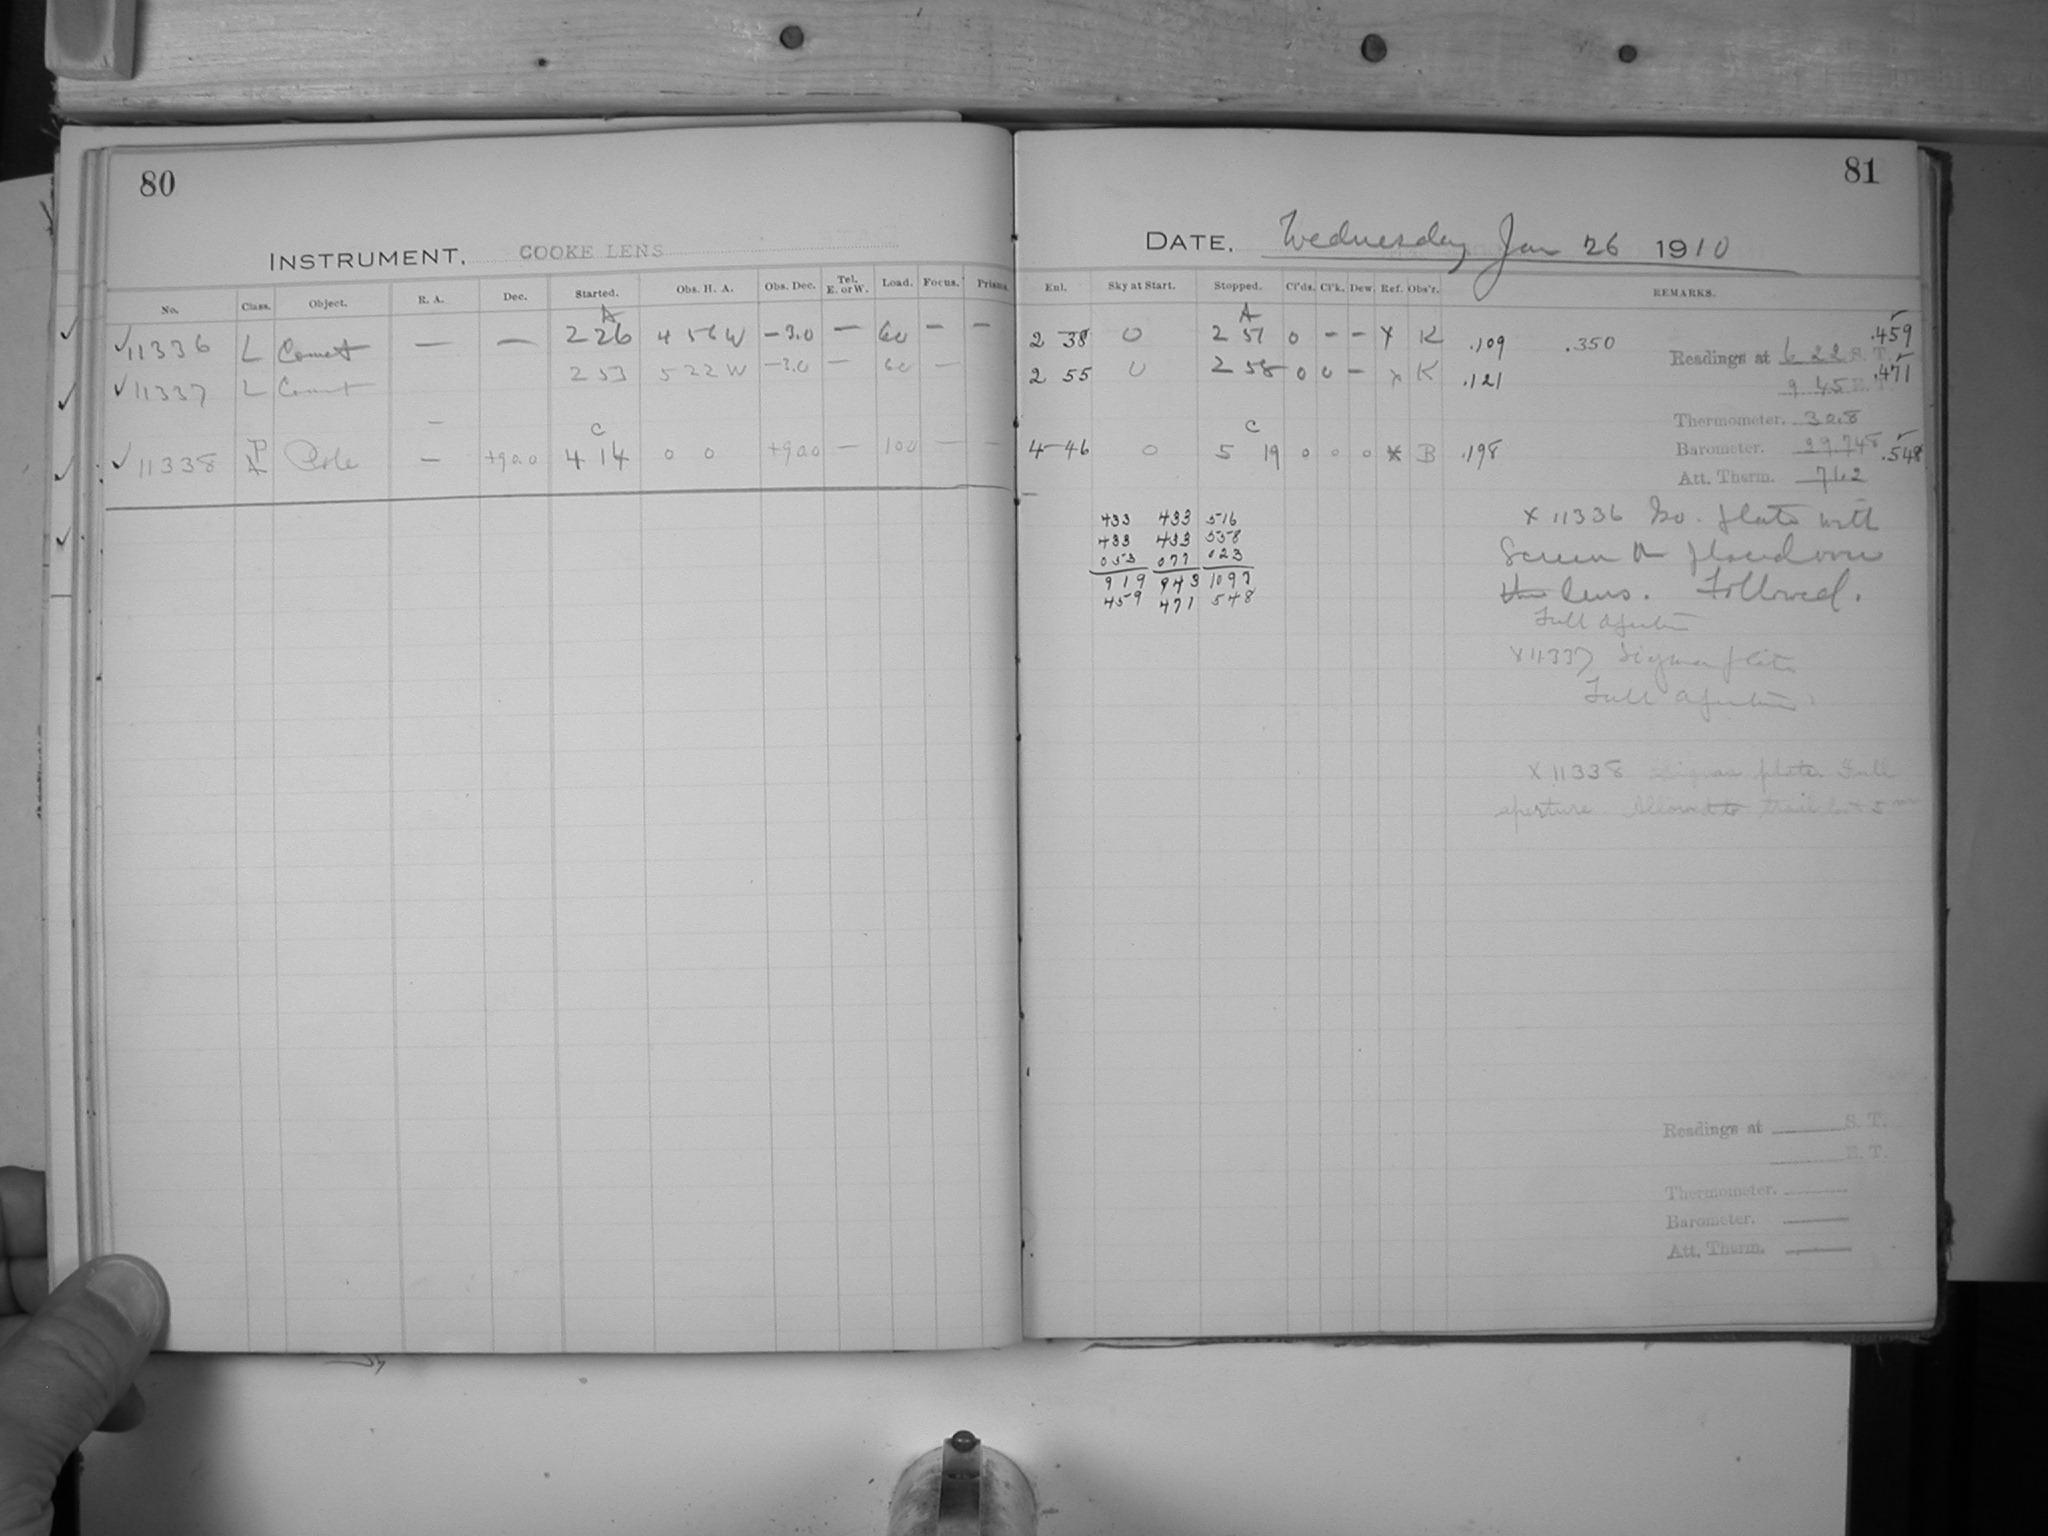 80
INSTRUMENT. COOKE LENS
No. Class. Object. R. A. Dec. Started. Obs. H. A. Obs. Dec. Tel. E. or W. Load. Focus. Prisms.
A
✓11336 L Comet — — 2 26 4 56 W -3.0 — 60 — —
✓11337 L Comet 2 53 5 22 W -3.0 — 60 —
C
✓11338 Pole — +90.0 4 14 0 0 +90.0 — 100 — —
81
DATE. Wednesday Jan 26 1910
Enl. Sky at Start. Stopped. Cl'ds. Cl'k. Dew. Ref. Obs'r. REMARKS.
A
2 38 0 2 51 0 - - x K .109 .350 .459
Readings at 6 22 S. T.
2 55 0 2 58 0 0 - x K .121 .471
9 45 E. T.
Thermometer. 30.8
C
4 46 0 5 19 0 0 0 x B .198
Barometer. 29.748 .548
Att. Therm. 71.2
433 433 516
433 433 558
053 077 023
919 943 1097
459 471 548
x 11336 Iso. plate with
Screen placed over
the lens. Followed.
Full aperture
x 11337 Sigma plate
Full aperture
x 11338 Sigma plate Full
aperture Allowed to trail last 5 m
Readings at S. T.
E. T.
Thermometer.
Barometer.
Att. Therm.